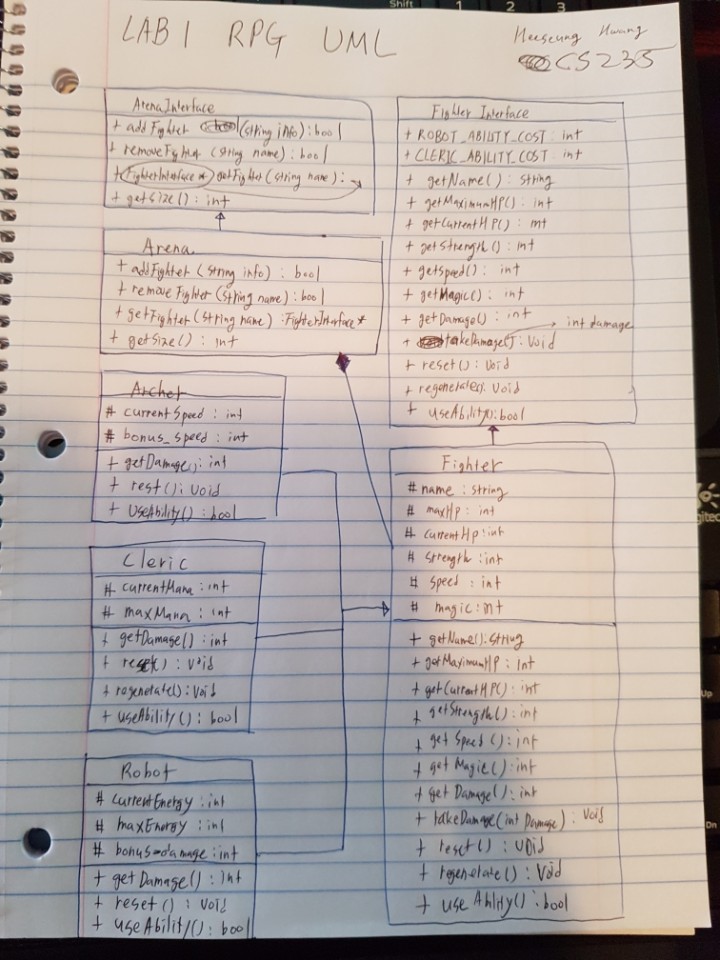 Shift 1 2 3
LAB 1 RPG UML
Heeseung Hwang
CS235
ArenaInterface
+ addFighter (string info): bool
+ removeFighter (string name): bool
+ (FighterInterface *) getFighter (string name):
+ getSize(): int
Arena
+ addFighter (string info): bool
+ removeFighter (string name): bool
+ getFighter (string name): FighterInterface *
+ getSize(): int
Archer
# currentSpeed: int
# bonus_speed: int
+ getDamage(): int
+ rest(): void
+ useAbility(): bool
Cleric
# currentMana: int
# maxMana: int
+ getDamage(): int
+ reset(): void
+ regenerate(): void
+ useAbility(): bool
Robot
# currentEnergy: int
# maxEnergy: int
# bonus_damage: int
+ getDamage(): int
+ reset(): void
+ useAbility(): bool
Fighter Interface
+ ROBOT_ABILITY_COST: int
+ CLERIC_ABILITY_COST: int
+ getName(): string
+ getMaximumHP(): int
+ getCurrentHP(): int
+ getStrength(): int
+ getSpeed(): int
+ getMagic(): int
+ getDamage(): int
int damage
+ takeDamage(): void
+ reset(): void
+ regenerate(): void
+ useAbility(): bool
Fighter
# name: string
# maxHp: int
# currentHp: int
# strength: int
# speed: int
# magic: int
+ getName(): string
+ getMaximumHP: int
+ getCurrentHP(): int
+ getStrength(): int
+ getSpeed(): int
+ getMagic(): int
+ getDamage(): int
+ takeDamage(int Damage): void
+ reset(): void
+ regenerate(): void
+ useAblity(): bool
Up
Dn